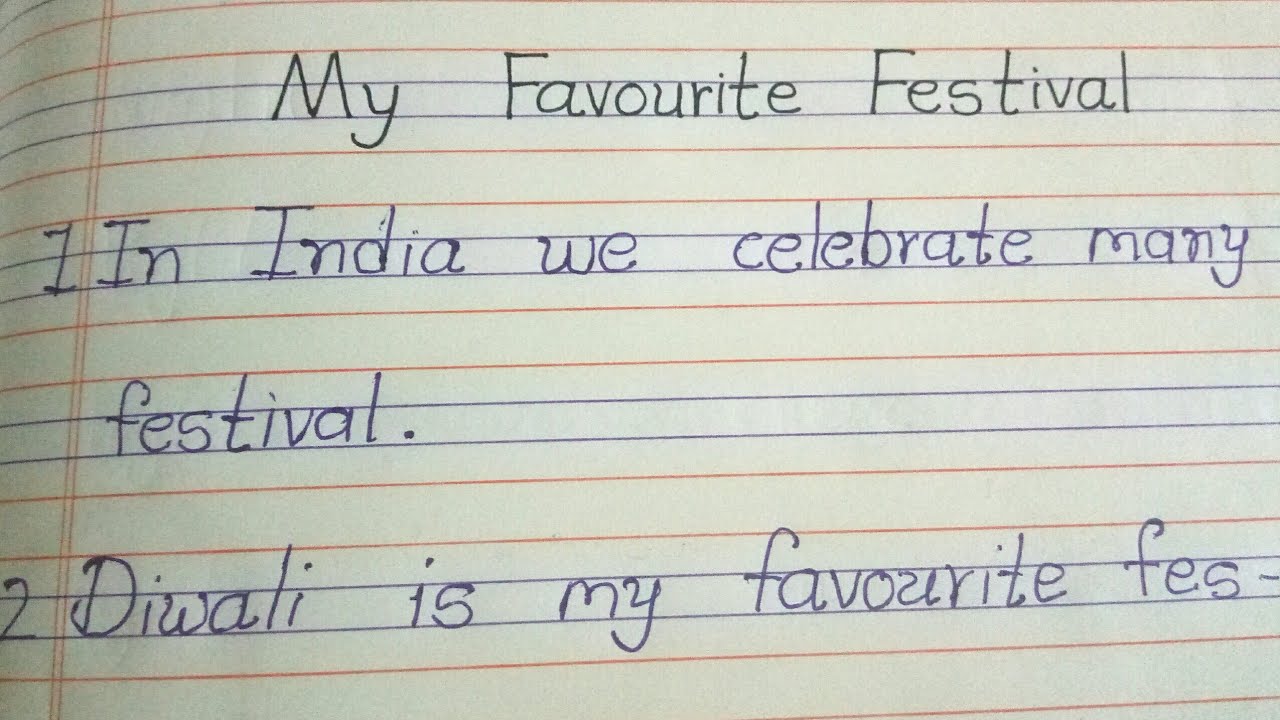 My Favourite Festival
1 In India we celebrate many
festival.
2 Diwali is my favourite fes-